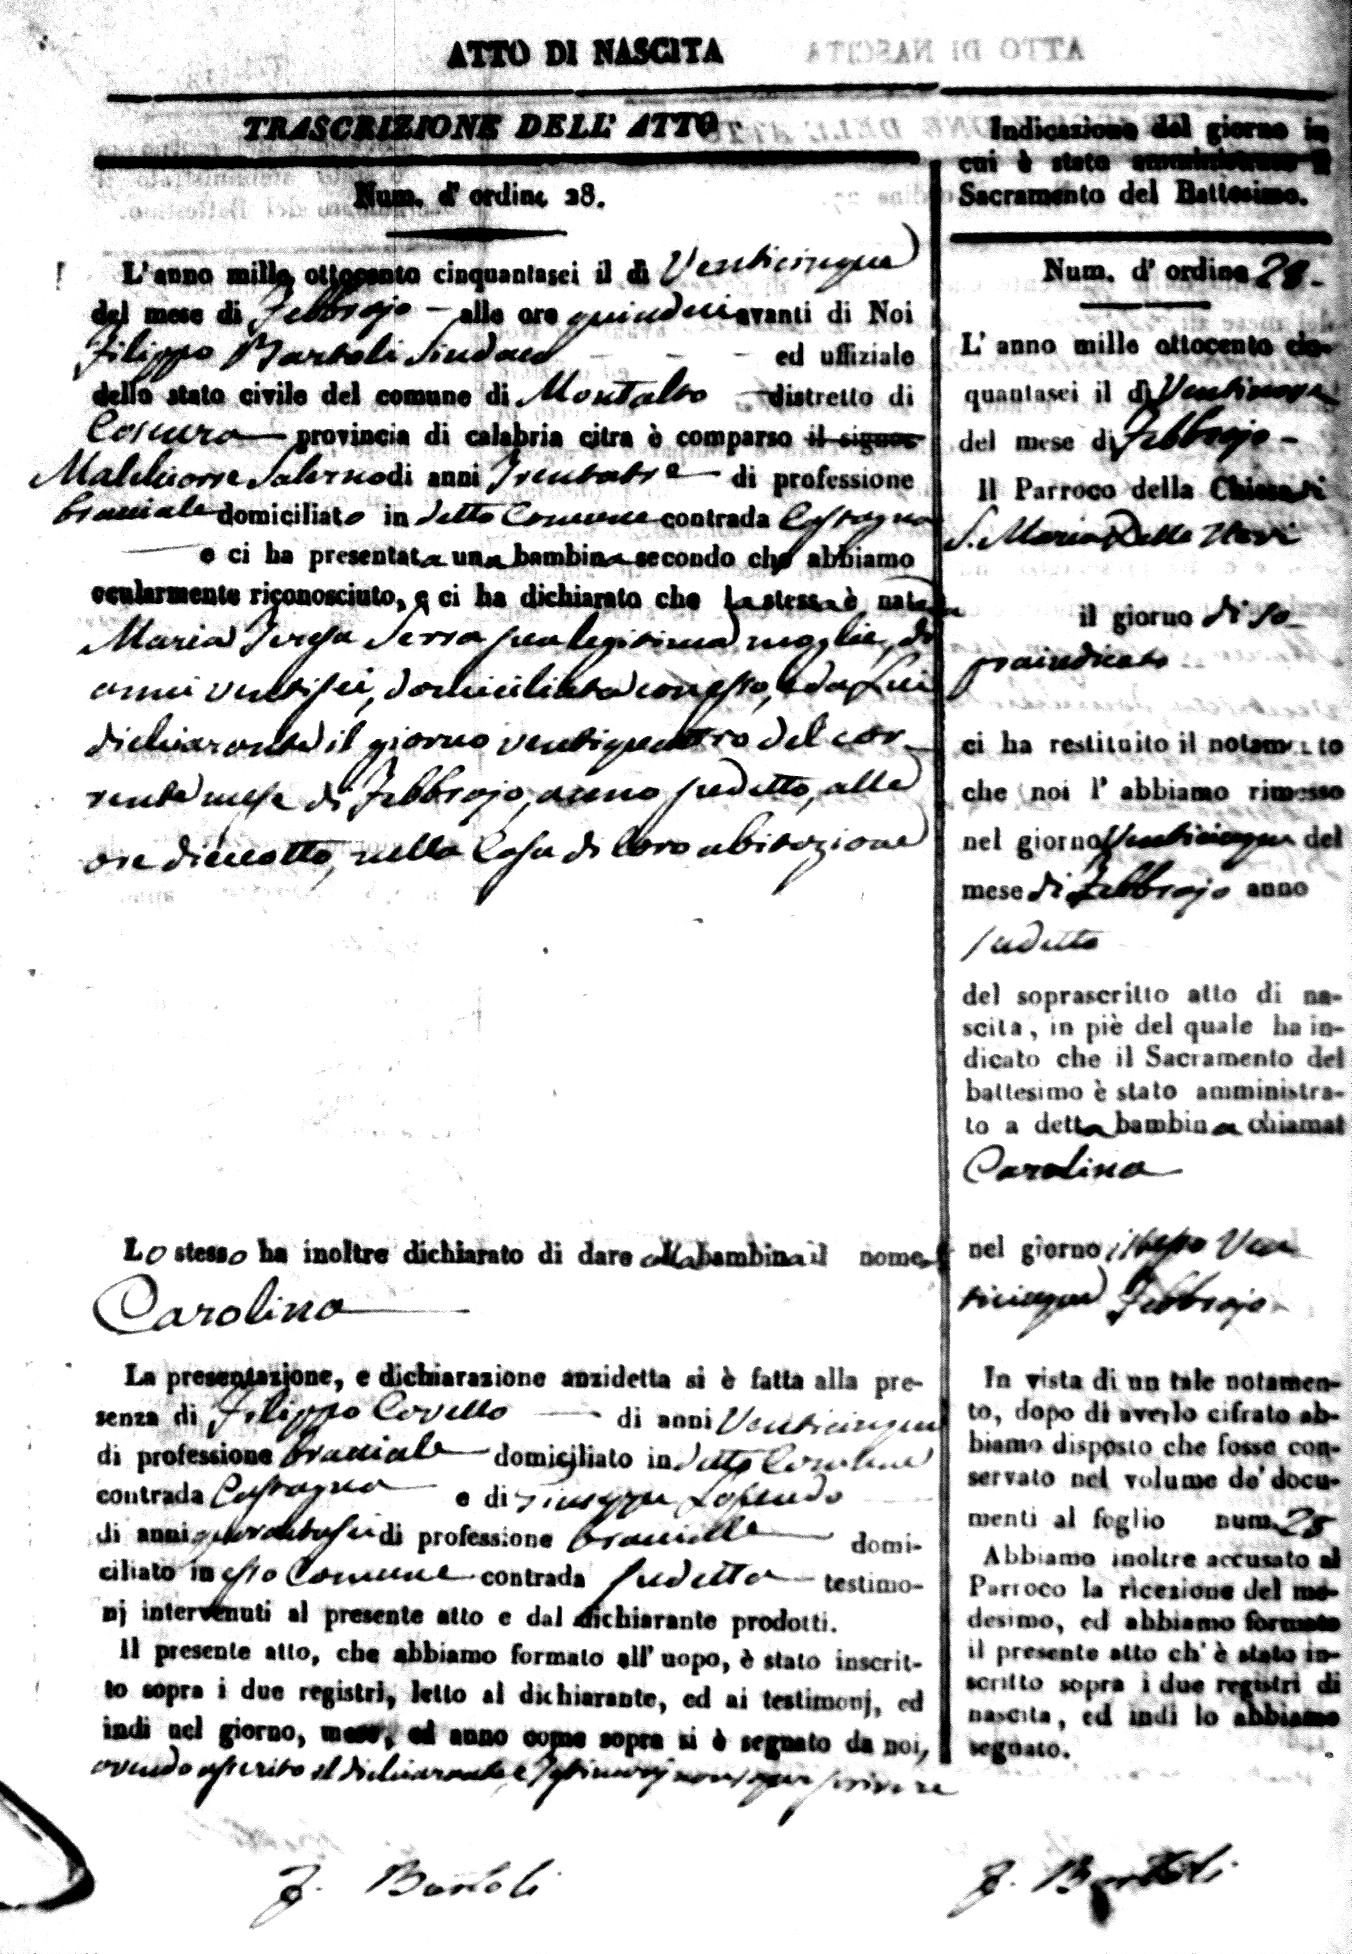 ATTO DI NASCITA
TRASCRIZIONE DELL' ATTO
Num. d' ordine 28.
L'anno mille ottocento cinquantasei il dì Venticinque
del mese di Febbrajo - alle ore quindici avanti di Noi
Filippo Bartoli Sindaco - - - ed uffiziale
dello stato civile del comune di Montalto distretto di
Cosenza provincia di calabria citra è comparso il signor
Malchiorre Salerno di anni Trentatre di professione
bracciale domiciliato in detto Comune contrada Castagna
e ci ha presentata una bambina secondo che abbiamo
ocularmente riconosciuto, e ci ha dichiarato che la stessa è nata da
Maria Teresa Serra sua legittima moglie, di
anni ventisei, domiciliata con esso, e da Lui
dichiarante il giorno ventiquattro del cor-
rente mese di Febbrajo, anno sudetto, alle
ore dieciotto, nella Casa di loro abitazione
Lo stesso ha inoltre dichiarato di dare alla bambina il nome
Carolina
La presentazione, e dichiarazione anzidetta si è fatta alla pre-
senza di Filippo Covello di anni Venticinque
di professione bracciale domiciliato in detto Comune
contrada Castagna e di Giuseppe
di anni quarantasei di professione bracciale domi-
ciliato in esso Comune contrada sudetta testimo-
nj intervenuti al presente atto e dal dichiarante prodotti.
Il presente atto, che abbiamo formato all' uopo, è stato inscrit-
to sopra i due registri, letto al dichiarante, ed ai testimonj, ed
indi nel giorno, mese, ed anno come sopra si è segnato da noi,
avendo asserito il dichiarante e Testimonj non saper scrivere
F. Bartoli
Indicazione del giorno in
cui è stato amministrato il
Sacramento del Battesimo.
Num. d' ordine 28.
L' anno mille ottocento cin-
quantasei il dì Ventinove
del mese di Febbrajo -
Il Parroco della Chiesa di
S. Maria Della
il giorno di so-
praindicato
ci ha restituito il notamento
che noi l' abbiamo rimesso
nel giorno Venticinque del
mese di Febbrajo anno
sudetto
del soprascritto atto di na-
scita, in piè del quale ha in-
dicato che il Sacramento del
battesimo è stato amministra-
to a detta bambina chiamat
Carolina
nel giorno istesso Ven
ticinque Febbrajo
In vista di un tale notamen-
to, dopo di averlo cifrato ab-
biamo disposto che fosse con-
servato nel volume de' docu-
menti al foglio num. 28
Abbiamo inoltre accusato al
Parroco la ricezione del me-
desimo, ed abbiamo formato
il presente atto ch' è stato in-
scritto sopra i due registri di
nascita, ed indi lo abbiamo
segnato.
F. Bartoli